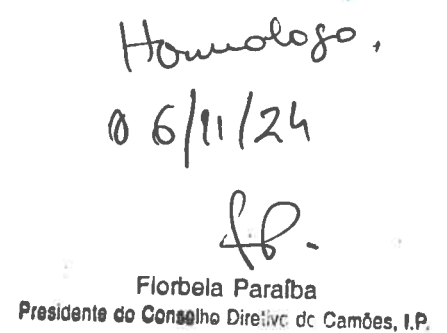 Homologo.
06/11/24
Florbela Paraíba
Presidente do Conselho Diretivo do Camões, I.P.